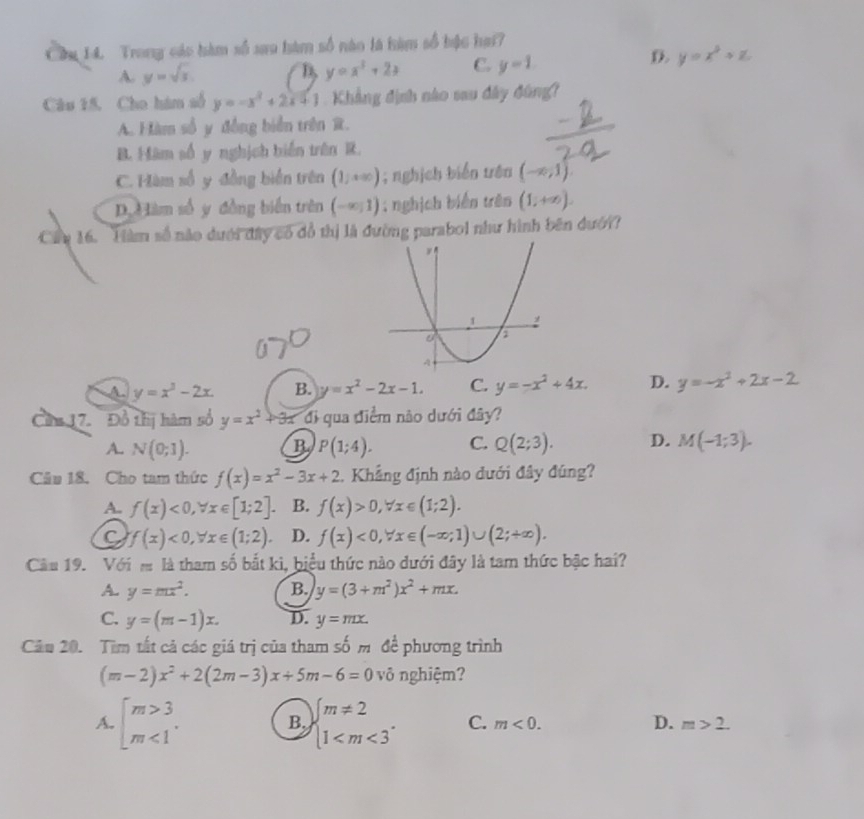 Câu 14. Trong các hàm số sau hàm số nào là hàm số bậc hai?
A. y = √x. B. y = x² + 2x C. y = 1. D. y =
Câu 15. Cho hàm số y = -x² + 2x + 1. Khẳng định nào sau đây đúng?
A. Hàm số y đồng biến trên ℝ.
B. Hàm số y nghịch biến trên ℝ.
C. Hàm số y đồng biến trên (1;+∞); nghịch biến trên (-∞;1).
D. Hàm số y đồng biến trên (-∞;1); nghịch biến trên (1;+∞).
-2
2a
Câu 16. Hàm số nào dưới đây có đồ thị là đường parabol như hình bên dưới?
y
x
1
O
2
a>0
A. y = x² - 2x. B. y = x² - 2x - 1. C. y = -x² + 4x. D. y = -x² + 2x - 2.
Câu 17. Đồ thị hàm số y = x² + 3x đi qua điểm nào dưới đây?
A. N(0;1). B. P(1;4). C. Q(2;3). D. M(-1;3).
Câu 18. Cho tam thức f(x) = x² - 3x + 2. Khẳng định nào dưới đây đúng?
A. f(x) < 0, ∀x ∈ [1;2]. B. f(x) > 0, ∀x ∈ (1;2).
C. f(x) < 0, ∀x ∈ (1;2). D. f(x) < 0, ∀x ∈ (-∞;1) ∪ (2;+∞).
Câu 19. Với m là tham số bất kì, biểu thức nào dưới đây là tam thức bậc hai?
A. y = mx². B. y = (3 + m²)x² + mx.
C. y = (m - 1)x. D. y = mx.
Câu 20. Tìm tất cả các giá trị của tham số m để phương trình
(m - 2)x² + 2(2m - 3)x + 5m - 6 = 0 vô nghiệm?
A. [m > 3 m < 1. B. {m ≠ 2 1 < m < 3. C. m < 0. D. m > 2.